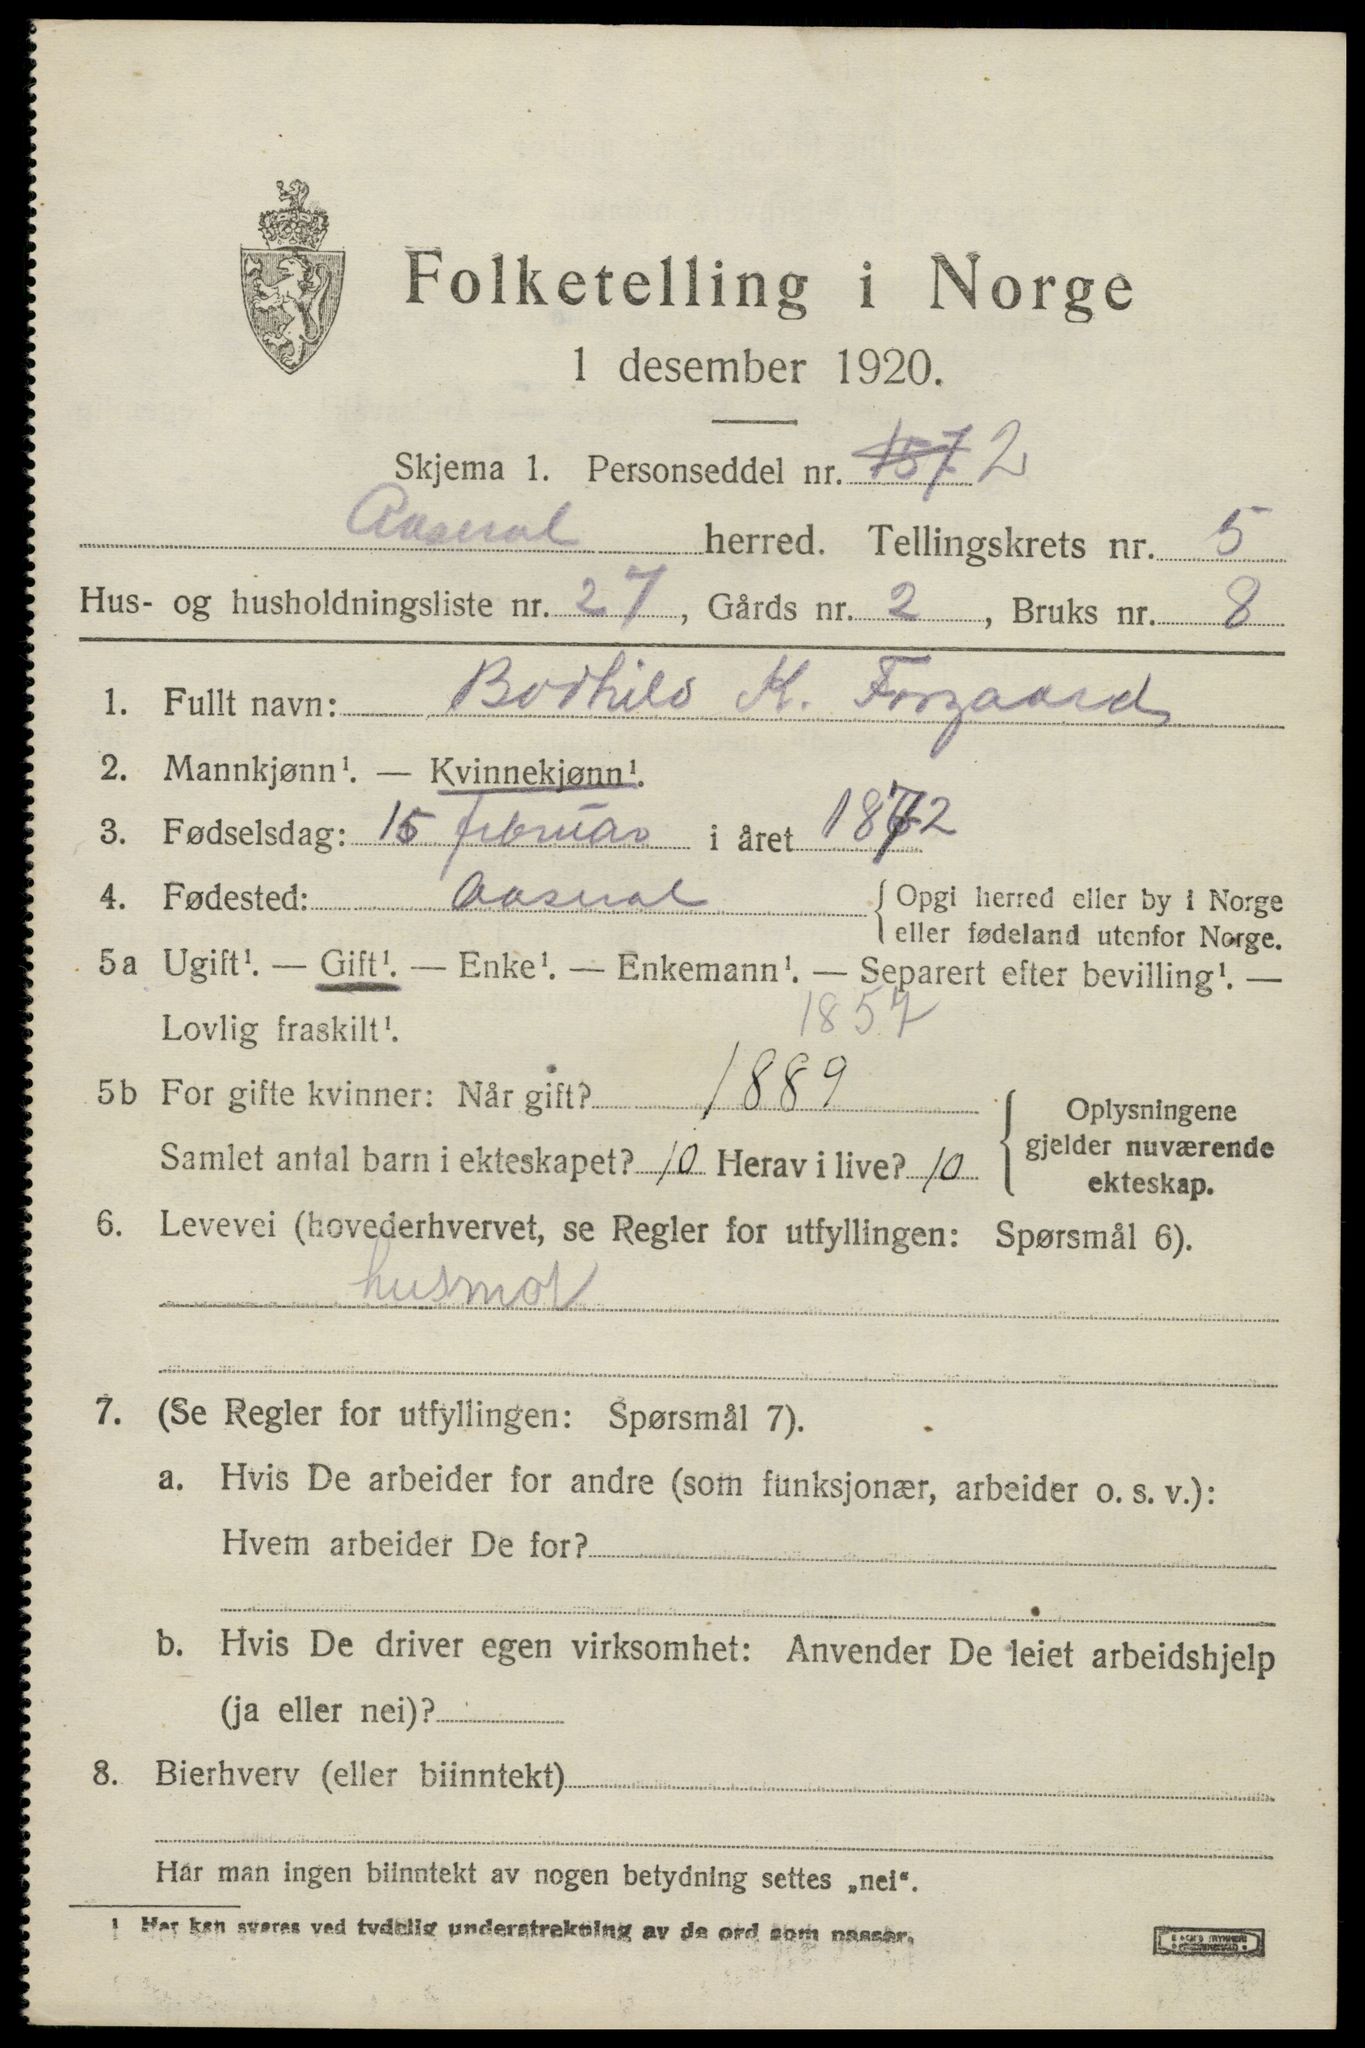 Folketelling i Norge
1 desember 1920.
Skjema 1. Personseddel nr. 157 2
Aaseral herred. Tellingskrets nr. 5
Hus- og husholdningsliste nr. 27, Gårds nr. 2, Bruks nr. 8
1. Fullt navn: Bodhild K. Forgaard
2. Mannkjønn¹. — Kvinnekjønn¹.
3. Fødselsdag: 15 februar i året 1872
4. Fødested: Aaseral { Opgi herred eller by i Norge
eller fødeland utenfor Norge.
5a Ugift¹. — Gift¹. — Enke¹. — Enkemann¹. — Separert efter bevilling¹. —
Lovlig fraskilt¹. 1857
5b For gifte kvinner: Når gift? 1889
Samlet antal barn i ekteskapet? 10 Herav i live? 10
{ Oplysningene
gjelder nuværende
ekteskap.
6. Levevei (hovederhvervet, se Regler for utfyllingen: Spørsmål 6).
husmor
7. (Se Regler for utfyllingen: Spørsmål 7).
a. Hvis De arbeider for andre (som funksjonær, arbeider o. s. v.):
Hvem arbeider De for?
b. Hvis De driver egen virksomhet: Anvender De leiet arbeidshjelp
(ja eller nei)?
8. Bierhverv (eller biinntekt)
Har man ingen biinntekt av nogen betydning settes „nei“.
1 Her kan svares ved tydelig understrekning av de ord som passer.